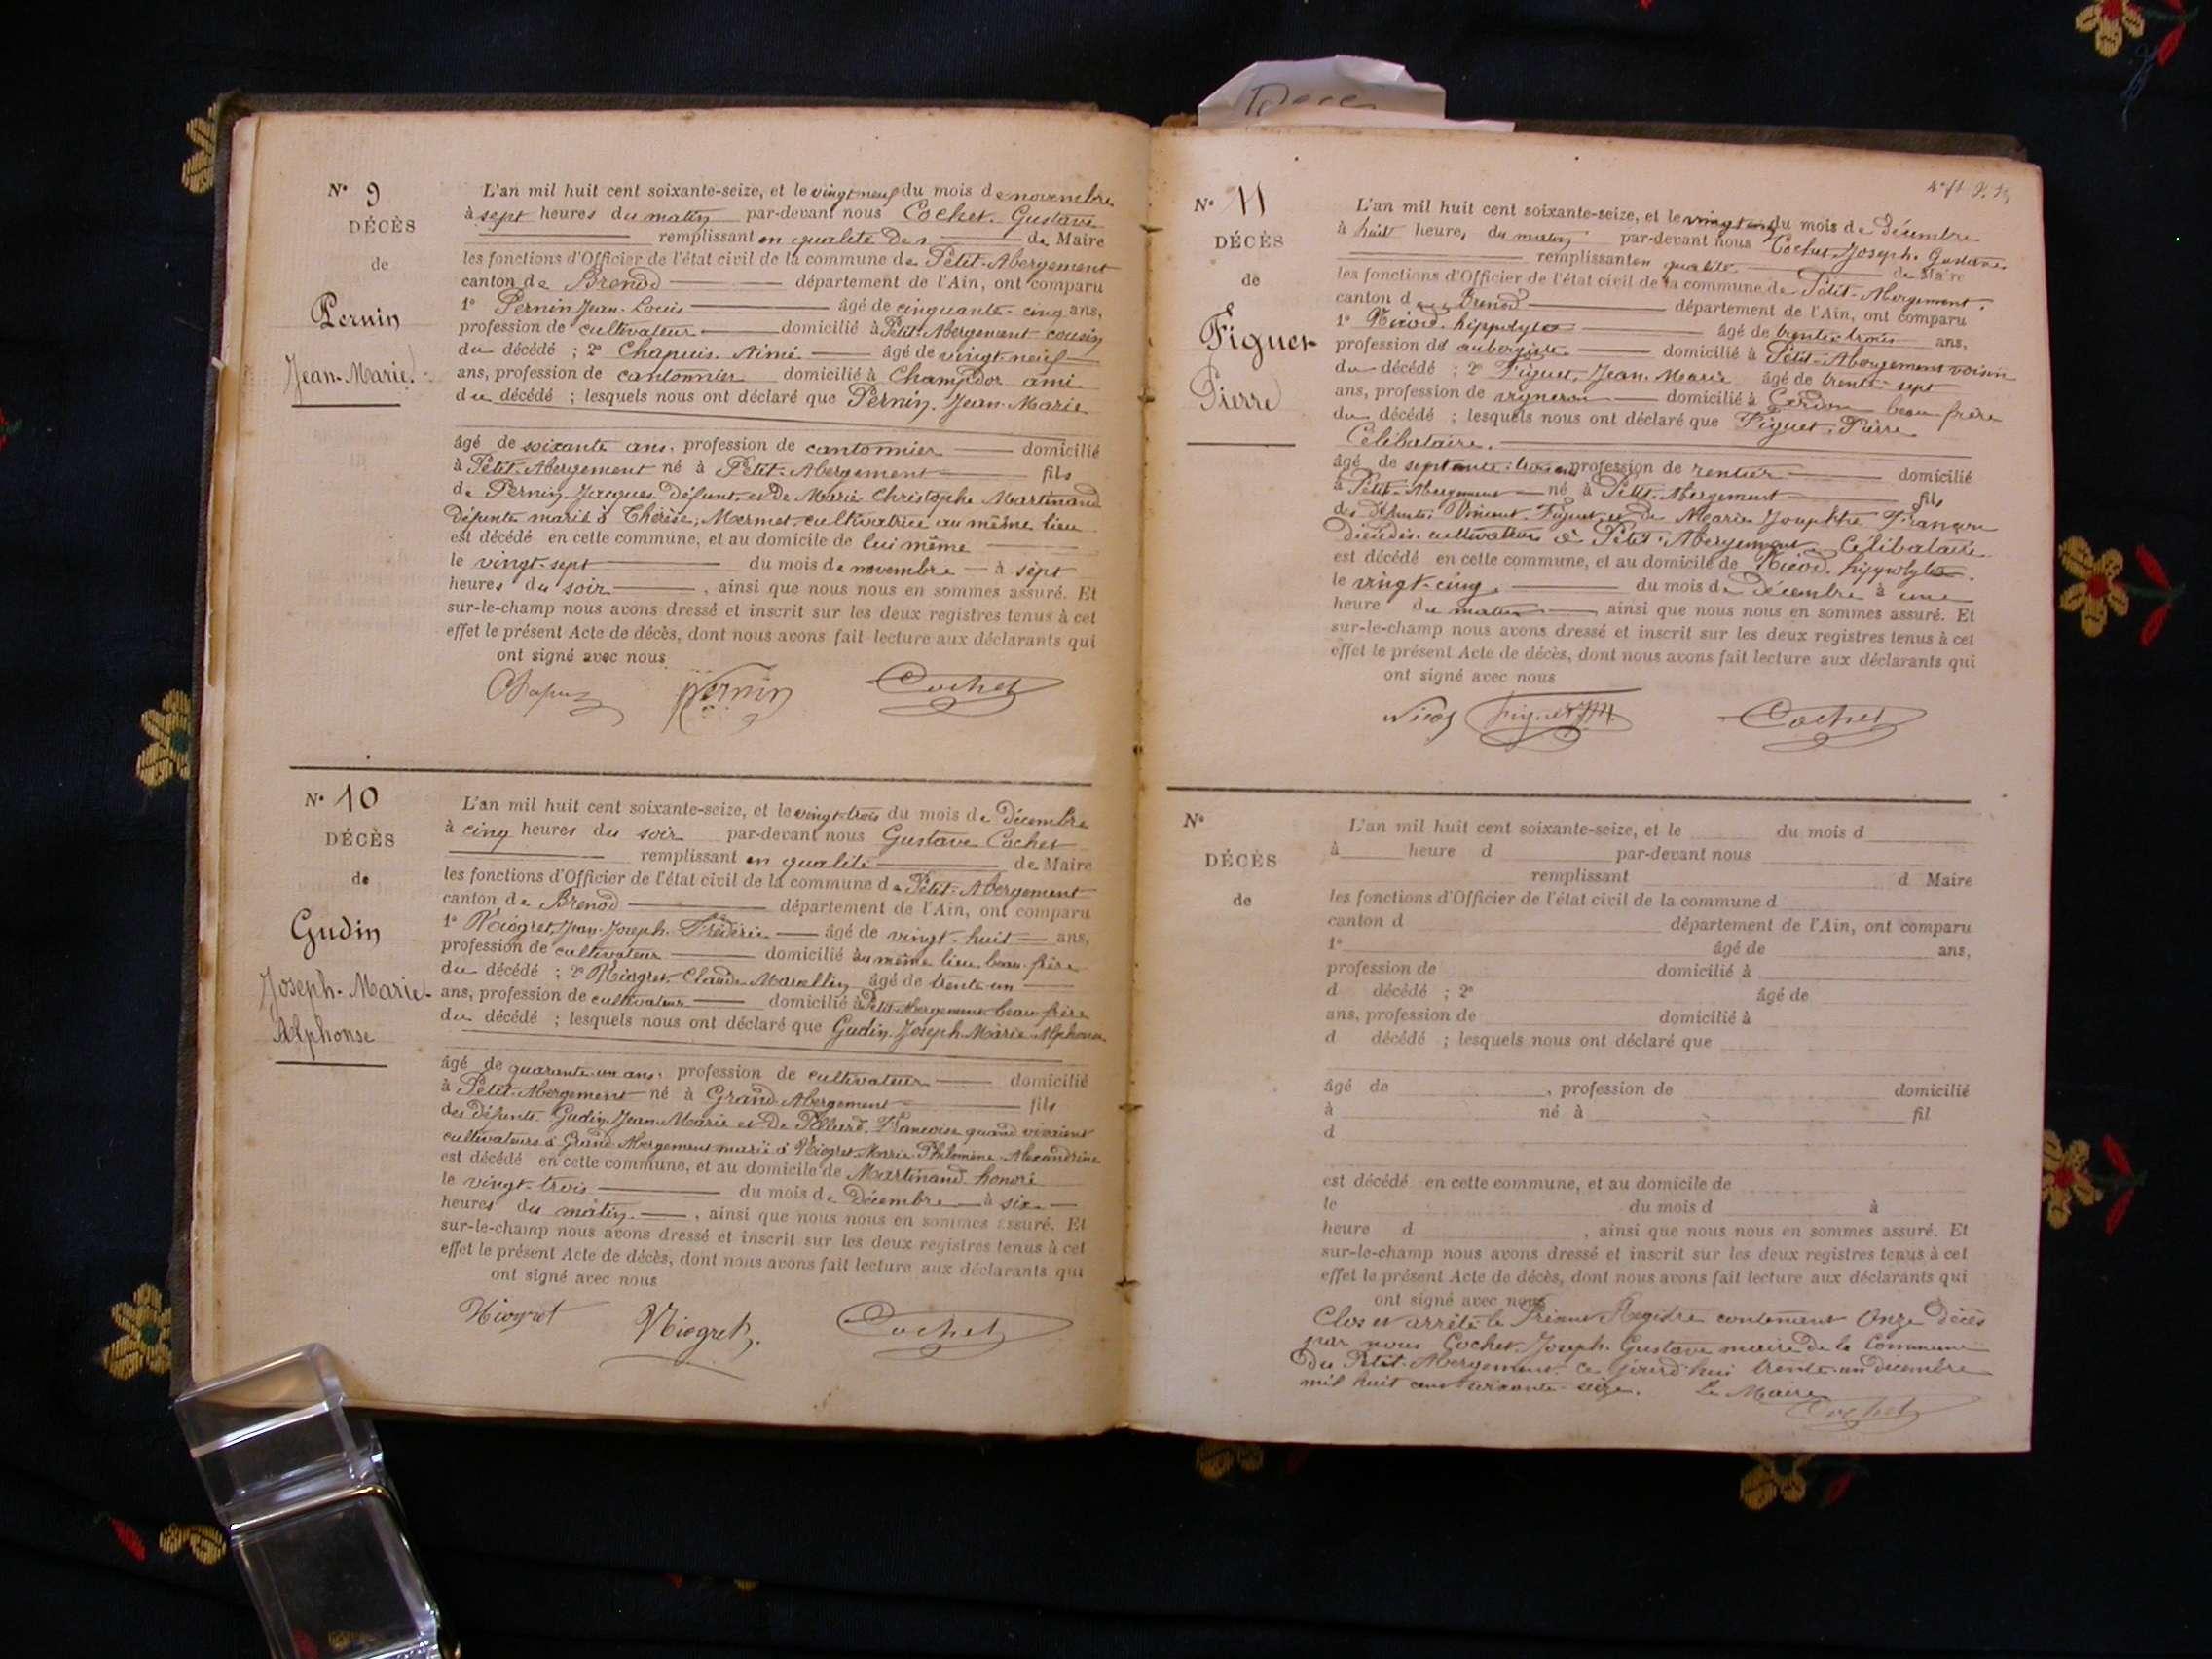 Nº 9
DÉCÈS
de
Pernin
Jean-Marie.
L'an mil huit cent soixante-seize, et le vingt neuf du mois de novembre
à sept heures du matin par-devant nous Cochet Gustave
remplissant en qualité de Maire
les fonctions d'Officier de l'état civil de la commune de Petit-Abergement
canton de Brenod département de l'Ain, ont comparu
1º Pernin Jean-Louis âgé de cinquante-cinq ans,
profession de cultivateur domicilié à Petit-Abergement cousin
du décédé ; 2º Chapuis Aimé âgé de vingt-neuf
ans, profession de cantonnier domicilié à Champdor ami
du décédé ; lesquels nous ont déclaré que Pernin Jean-Marie
âgé de soixante ans, profession de cantonnier domicilié
à Petit-Abergement né à Petit-Abergement fils
de Pernin Jacques défunt et de Marie Christophe Martinand
défunte marié à Thérèse Mermet cultivatrice au même lieu
est décédé en cette commune, et au domicile de lui même
le vingt-sept du mois de novembre à sept
heures du soir , ainsi que nous nous en sommes assuré. Et
sur-le-champ nous avons dressé et inscrit sur les deux registres tenus à cet
effet le présent Acte de décès, dont nous avons fait lecture aux déclarants qui
ont signé avec nous
Pernin Cochet
Nº 10
DÉCÈS
de
Gudin
Joseph-Marie
Alphonse
L'an mil huit cent soixante-seize, et le vingt-trois du mois de Décembre
à cinq heures du soir par-devant nous Gustave Cochet
remplissant en qualité de Maire
les fonctions d'Officier de l'état civil de la commune de Petit-Abergement
canton de Brenod département de l'Ain, ont comparu
1º Niogret Jean-Joseph Frédéric âgé de vingt-huit ans,
profession de cultivateur domicilié au même lieu beau-frère
du décédé ; 2º Niogret Claude Marcellin âgé de trente-un
ans, profession de cultivateur domicilié à Petit-Abergement beau frère
du décédé ; lesquels nous ont déclaré que Gudin Joseph-Marie-Alphonse
âgé de quarante-un ans, profession de cultivateur domicilié
à Petit-Abergement né à Grand-Abergement fils
des défunts Gudin Jean-Marie et de Françoise quand vivaient
cultivateurs à Grand-Abergement marié à Niogret Marie Philomène Alexandrine
est décédé en cette commune, et au domicile de Martinand honoré
le vingt-trois du mois de Décembre à six
heures du matin , ainsi que nous nous en sommes assuré. Et
sur-le-champ nous avons dressé et inscrit sur les deux registres tenus à cet
effet le présent Acte de décès, dont nous avons fait lecture aux déclarants qui
ont signé avec nous
Niogret Niogret Cochet
Nº 11
DÉCÈS
de
Figuet
Pierre
L'an mil huit cent soixante-seize, et le vingt cinq du mois de Décembre
à huit heures du matin par-devant nous Cochet Joseph Gustave
remplissant en qualité de Maire
les fonctions d'Officier de l'état civil de la commune de Petit-Abergement
canton de Brenod département de l'Ain, ont comparu
1º Nicod hippolyte âgé de trente-trois ans,
profession d'aubergiste domicilié à Petit-Abergement voisin
du décédé ; 2º Figuet Jean-Marie âgé de trente-sept
ans, profession de vigneron domicilié à Cerdon beau-frère
du décédé ; lesquels nous ont déclaré que Figuet Pierre
Célibataire.
âgé de septante-trois ans profession de rentier domicilié
à Petit-Abergement né à Petit-Abergement fils
des défunts Vincent Figuet et de Marie
décédés cultivateurs à Petit-Abergement Célibataire
est décédé en cette commune, et au domicile de Nicod hippolyte
le vingt-cinq du mois de Décembre à une
heure du matin ainsi que nous nous en sommes assuré. Et
sur-le-champ nous avons dressé et inscrit sur les deux registres tenus à cet
effet le présent Acte de décès, dont nous avons fait lecture aux déclarants qui
ont signé avec nous
Nicod Figuet JM Cochet
Nº
DÉCÈS
de
L'an mil huit cent soixante-seize, et le du mois d
à heure d par-devant nous
remplissant d Maire
les fonctions d'Officier de l'état civil de la commune d
canton d département de l'Ain, ont comparu
1º âgé de ans,
profession de domicilié à
d décédé ; 2º âgé de
ans, profession de domicilié à
d décédé ; lesquels nous ont déclaré que
âgé de , profession de domicilié
à né à fil
d
est décédé en cette commune, et au domicile de
le du mois d à
heure d , ainsi que nous nous en sommes assuré. Et
sur-le-champ nous avons dressé et inscrit sur les deux registres tenus à cet
effet le présent Acte de décès, dont nous avons fait lecture aux déclarants qui
ont signé avec nous
Clos et arrêté le Présent Registre contenant Onze Décès
par nous Cochet Joseph Gustave maire de la Commune
du Petit-Abergement ce jourd'hui trente-un décembre
mil huit cent soixante-seize. Le Maire
Cochet